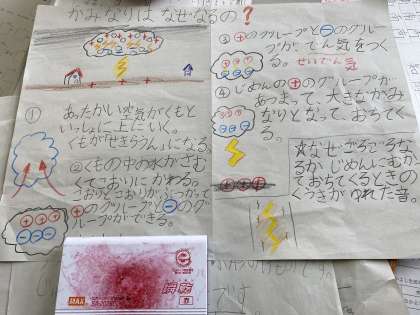 かみなりは なぜなるの?
① あったかい空気がくもと
いっしょに上にいく。
くもが「せきらんうん」になる。
②くもの中の水がさむ
くてこおりにかわる。
こおりとこおりがぶつかって
⊕のグループと⊖のグル
ープができる。
③ ⊕のグループと⊖のグルー
プが、でん気をつく
る。せいでん気
④ じめんの⊕のグループが
あつまって、大きなかみ
なりとなって、おちてく
る。
☆なぜ、ゴロゴロな
るか、じめんにむか
っておちてくるときの
くうきがゆれた音。
MAX
e
瞬乾
です。
です